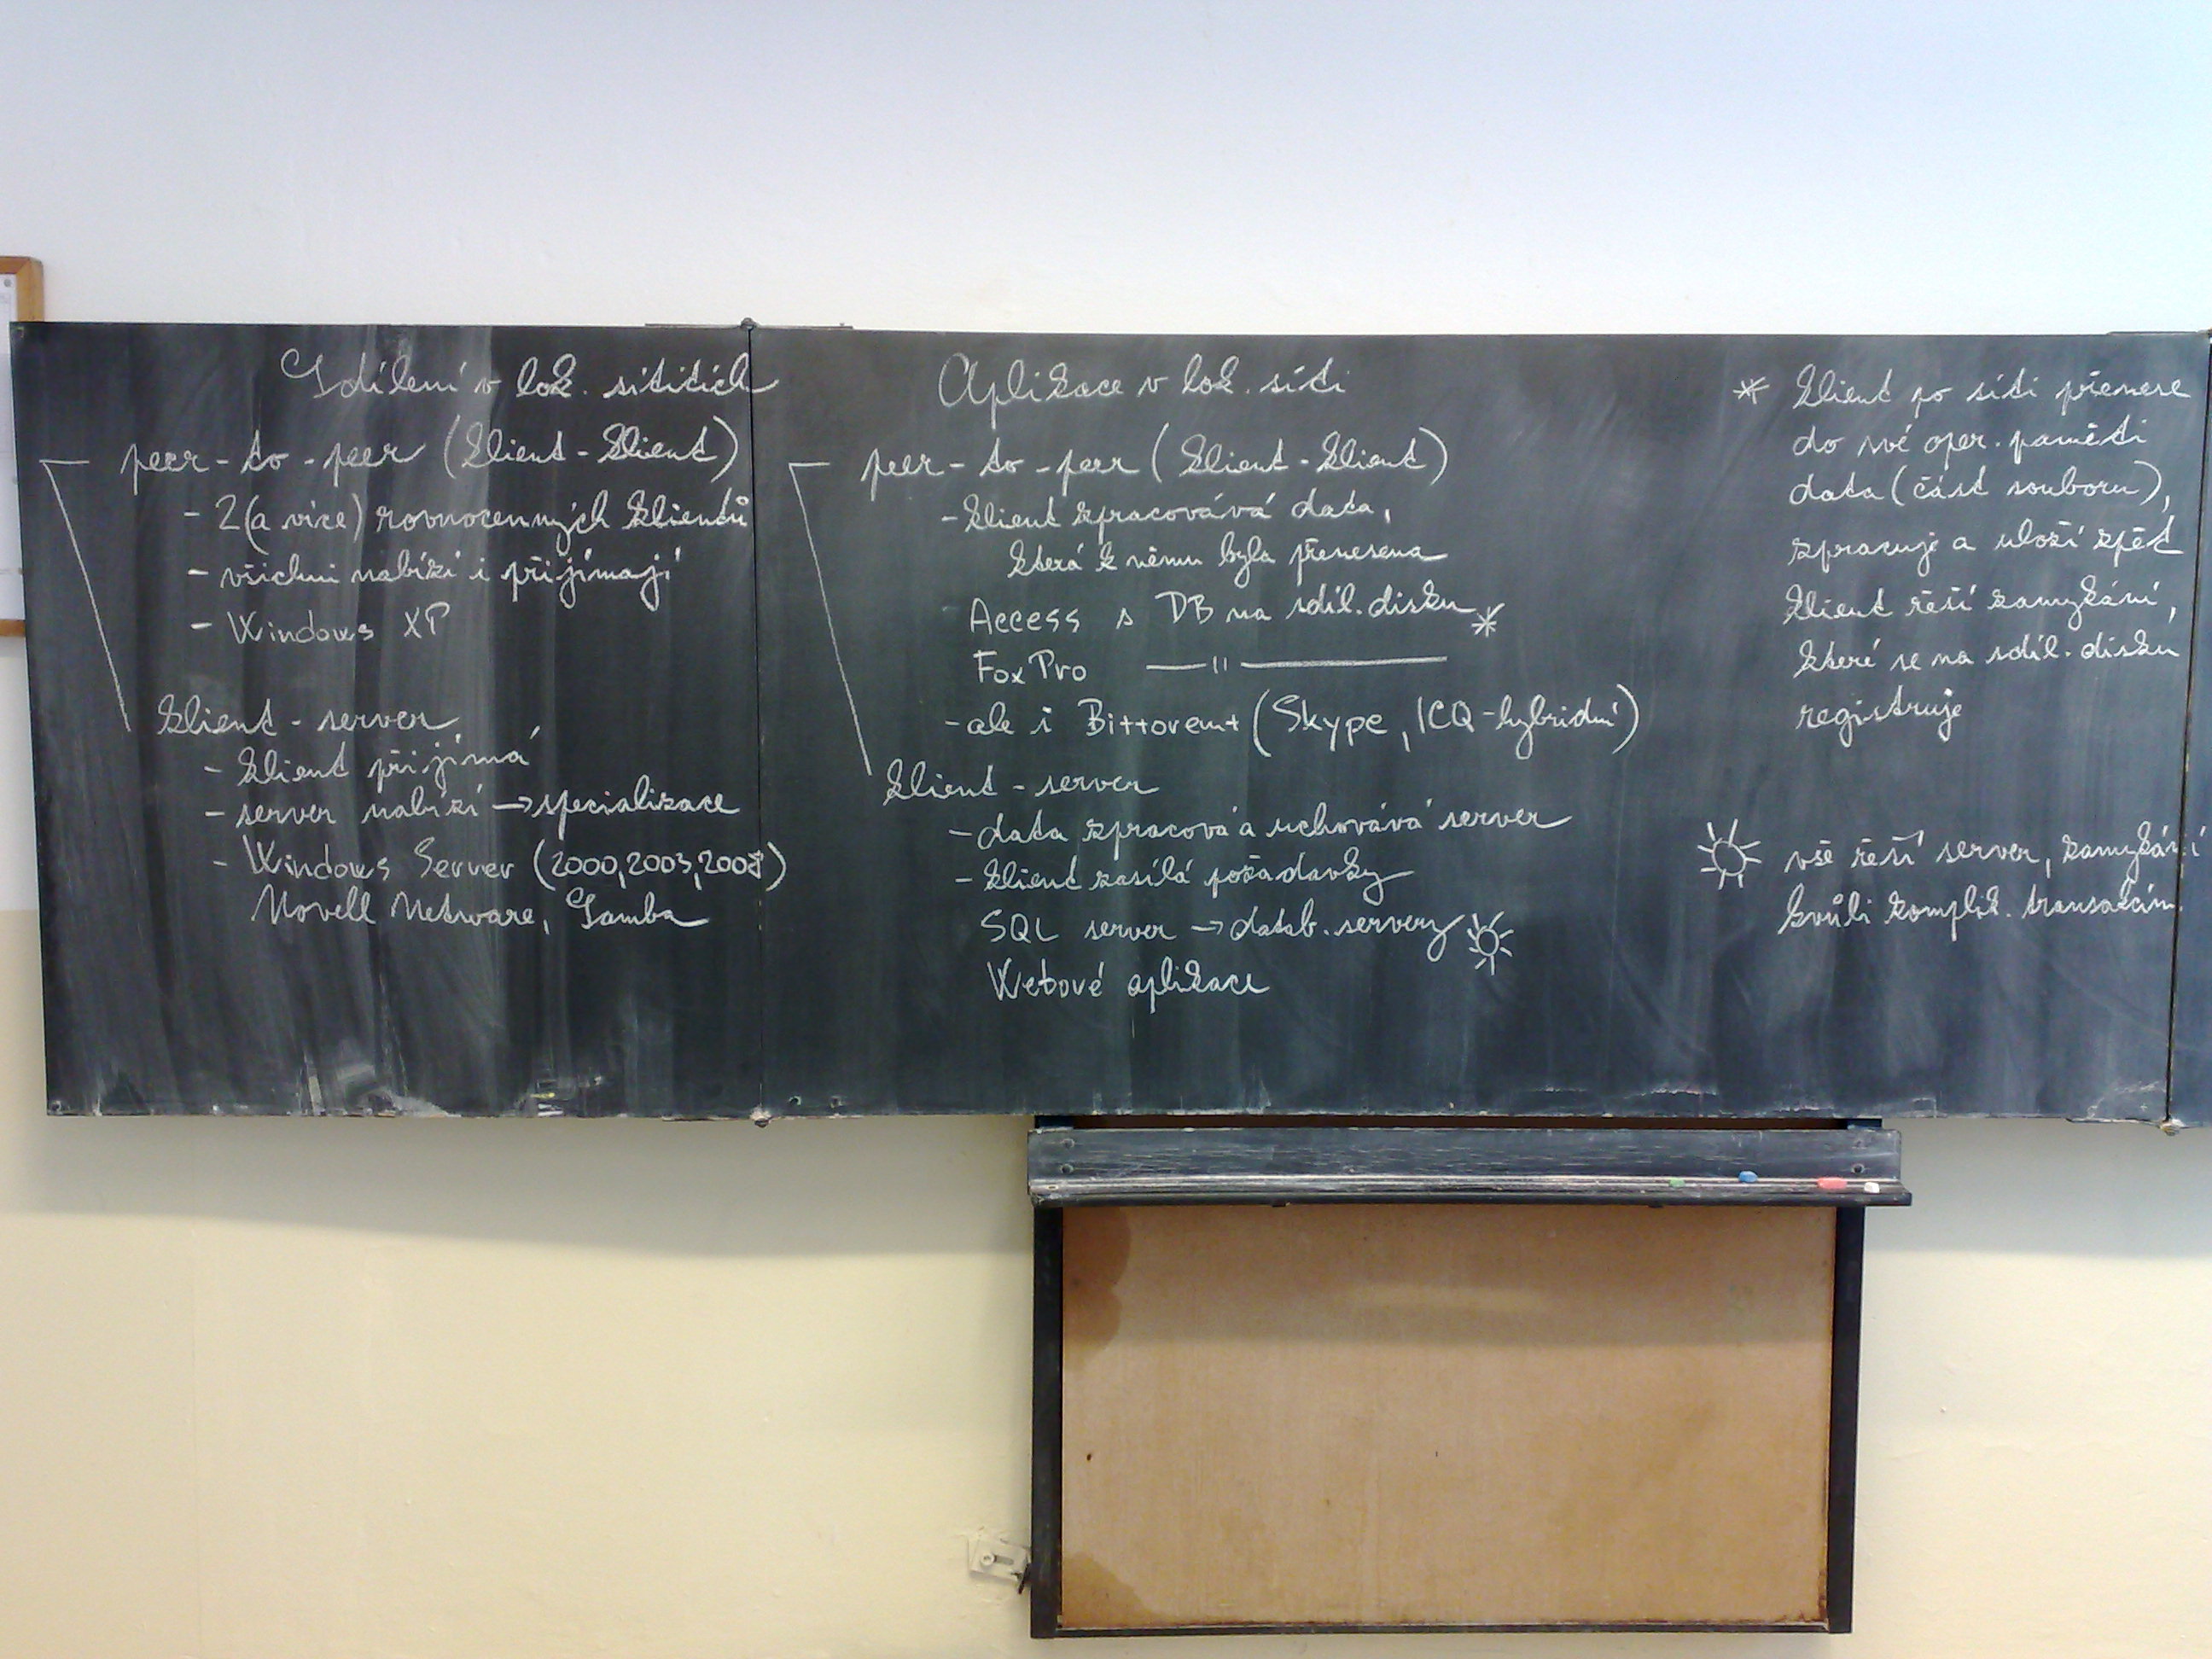 Sdílení v lok. sítitích
peer-to-peer (klient-klient)
- 2(a více) rovnocenných klientů
- všichni nabízí i přijímají
- Windows XP
klient-server
- klient přijímá
- server nabízí → specializace
- Windows Server (2000,2003,2008)
Novell Netware, Samba
Aplikace v lok. síti
peer-to-peer (klient-klient)
- klient zpracovává data,
která k němu byla přenesena
Access s DB na sdíl. disku *
FoxPro —— 11 ——
- ale i Bittorent (Skype, ICQ-hybridní)
klient-server
- data zpracová a uchovává server
- klient zasílá požadavky
SQL server → datab. servery ☼
Webové aplikace
* klient po síti přenese
do své oper. paměti
data (část souboru),
zpracuje a uloží zpět
klient řeší zamykání,
které se na sdíl. disku
registruje
☼ vše řeší server, zamykání
kvůli komplik. transakcím.